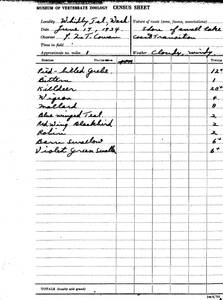 MUSEUM OF VERTEBRATE ZOOLOGY CENSUS SHEET
Locality Whidby Isl, Wash Nature of route (area, fauna, associations)
Date June 17, 1934 Shore of small lake
Observer I. McT. Cowan Coast Transition
Time in field
Approximate no. miles Weather Cloudy, windy
Pied-billed Grebe 12
Bittern 1
Killdeer 20
Wigeon 4
Mallard 8
Blue winged Teal 2
Red wing Blackbird 2
Robin 2
Barn Swallow 6
Violet Green Swallow 6
TOTALS